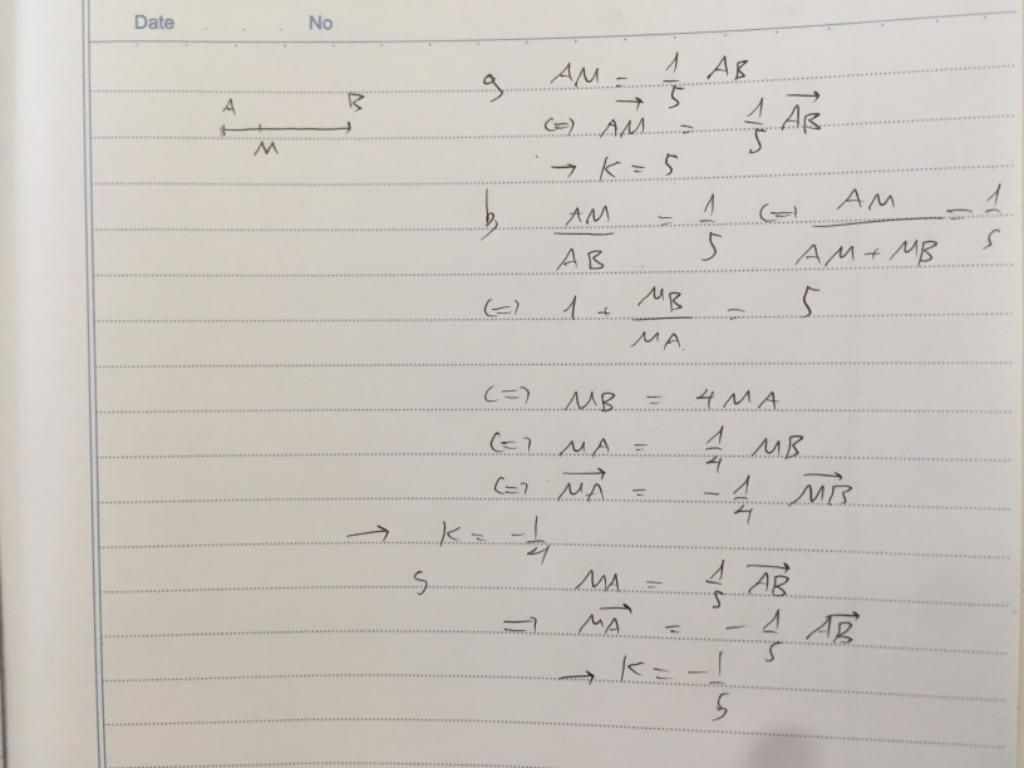 Date No
A B
M
a, AM = 1/5 AB
<=> \overrightarrow{AM} = 1/5 \overrightarrow{AB}
→ K = 5
b, AM/AB = 1/5 <=> AM/(AM + MB) = 1/5
<=> 1 + MB/MA = 5
<=> MB = 4 MA
<=> MA = 1/4 MB
<=> \overrightarrow{MA} = -1/4 \overrightarrow{MB}
→ K = -1/4
c, MA = 1/5 \overrightarrow{AB}
=> \overrightarrow{MA} = -1/5 \overrightarrow{AB}
→ K = -1/5